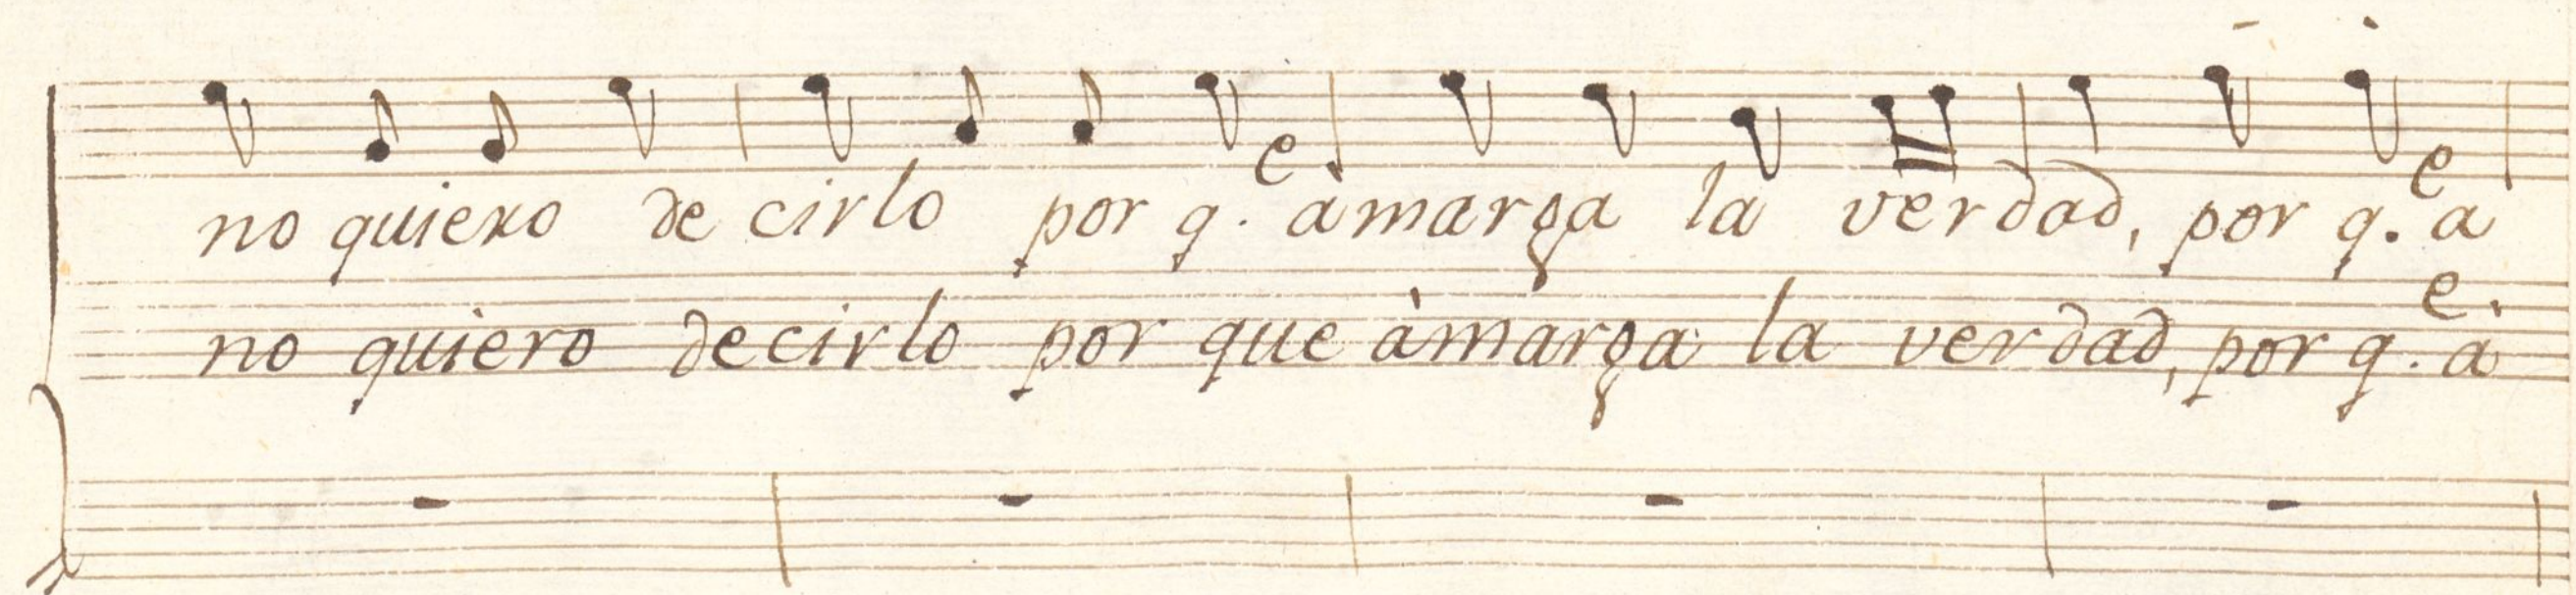 no quiero de cirlo por q.e amarga la verdad, por q.e a
no quiero decirlo por que àmarga la verdad, por q.e à